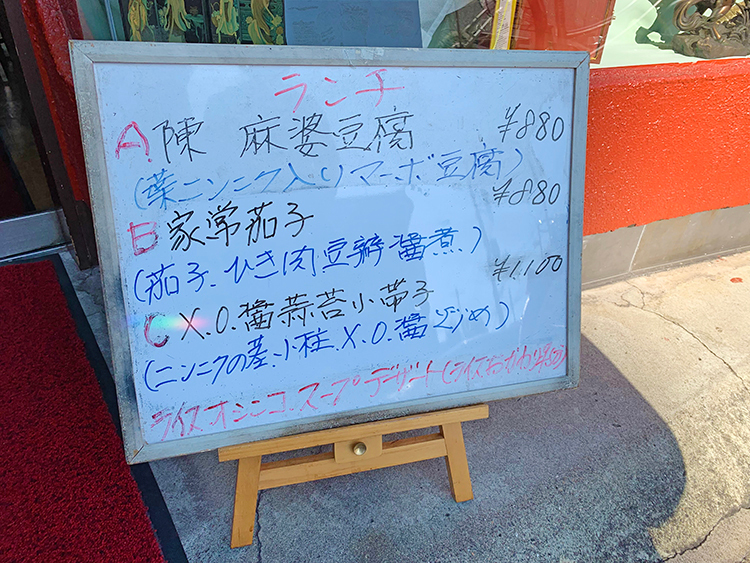 ランチ
A 陳 麻婆豆腐 ¥880
(葉ニンニク入りマーボ豆腐)
B 家常茄子 ¥880
(茄子、ひき肉豆瓣醤煮)
C X.O.醤蒜苔小帯子 ¥1,100
(ニンニクの茎、小柱、X.O.醤炒め)
ライス オシンコ スープ デザート (ライスおかわり